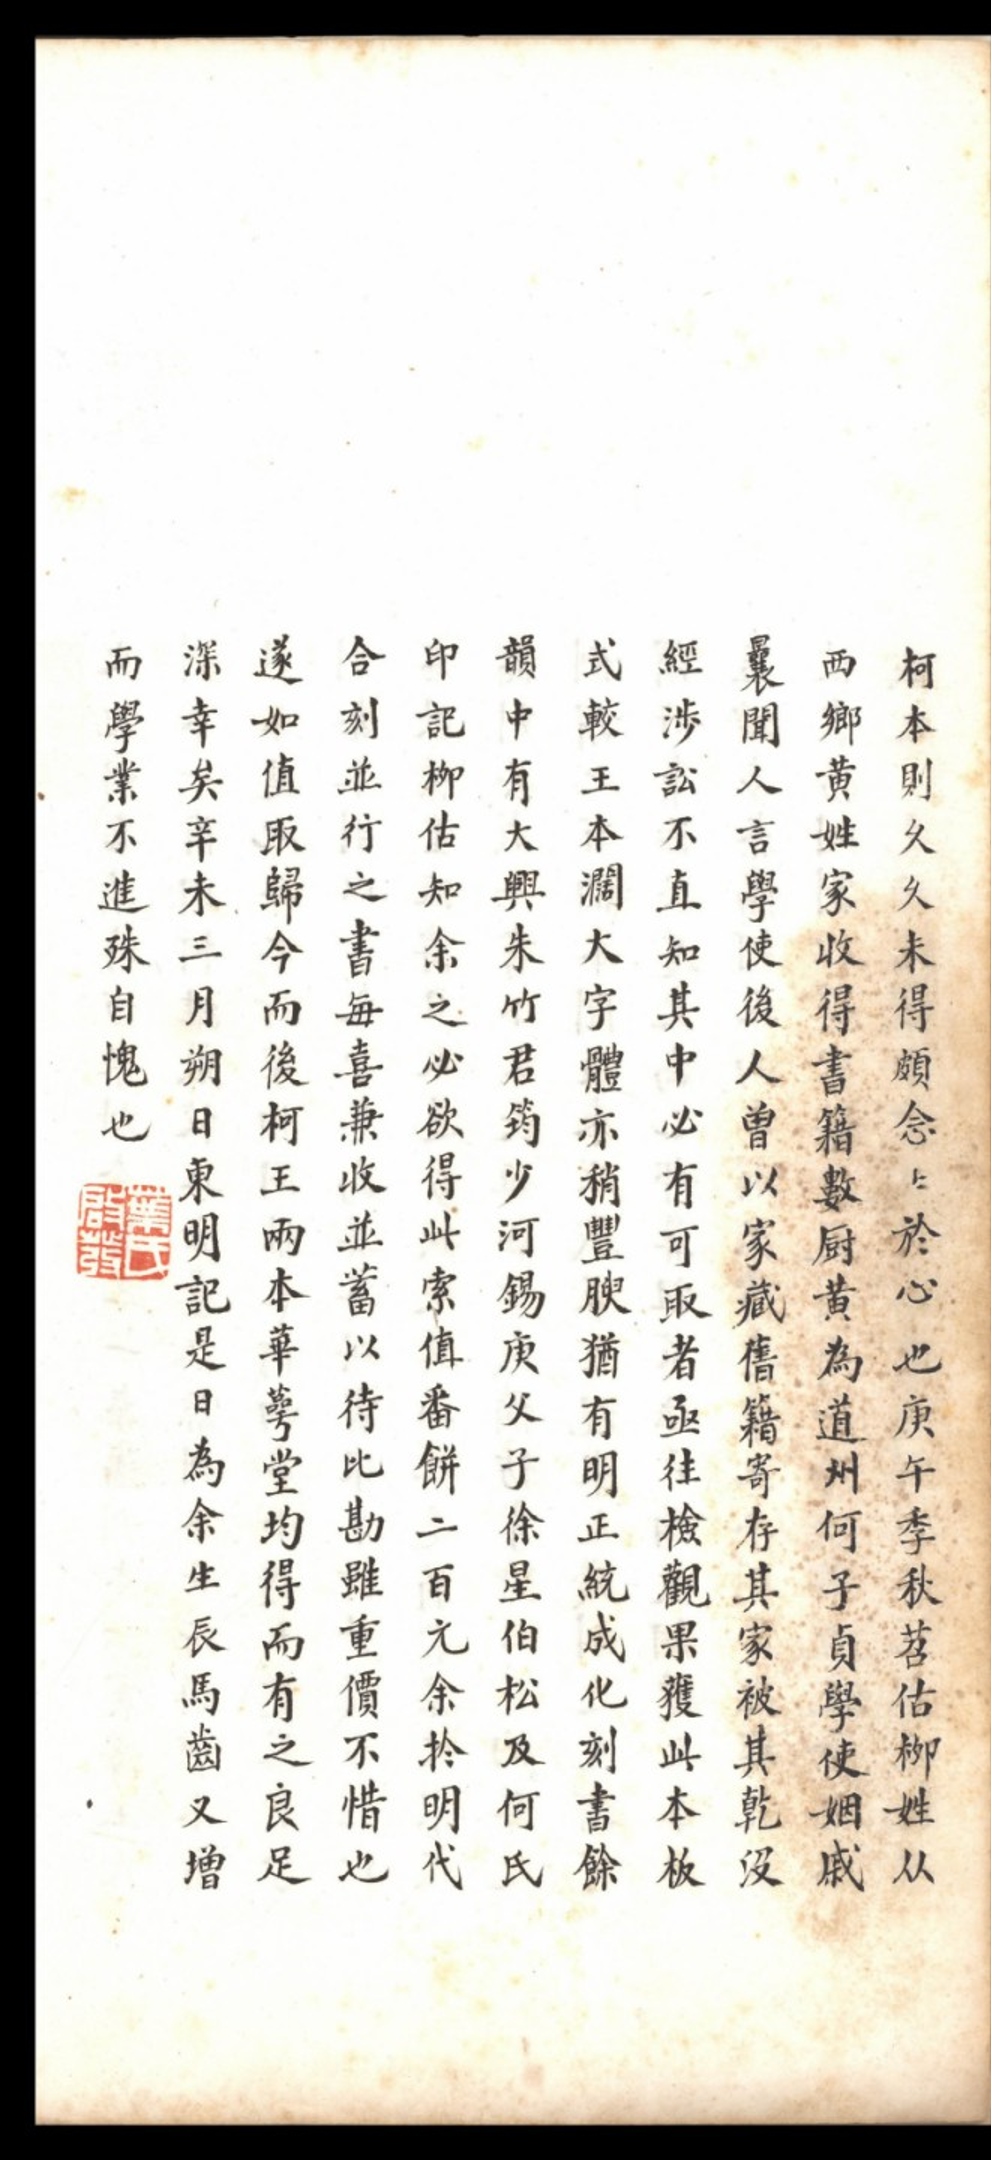 柯本則久久未得頗念〻於心也庚午季秋苕估柳姓从
西鄉黄姓家收得書籍數厨黄為道州何子貞學使姻戚
曩聞人言學使後人曾以家藏舊籍寄存其家被其乾没
經涉訟不直知其中必有可取者亟往檢觀果獲此本板
式較王本濶大字體亦稍豐腴猶有明正統成化刻書餘
韻中有大興朱竹君筠少河錫庚父子徐星伯松及何氏
印記柳估知余之必欲得此索值番餅二百元余於明代
合刻並行之書每喜兼收並蓄以待比勘雖重價不惜也
遂如值取歸今而後柯王兩本華萼堂均得而有之良足
深幸矣辛未三月朔日東明記是日為余生辰馬齒又增
而學業不進殊自愧也
葉氏啟發